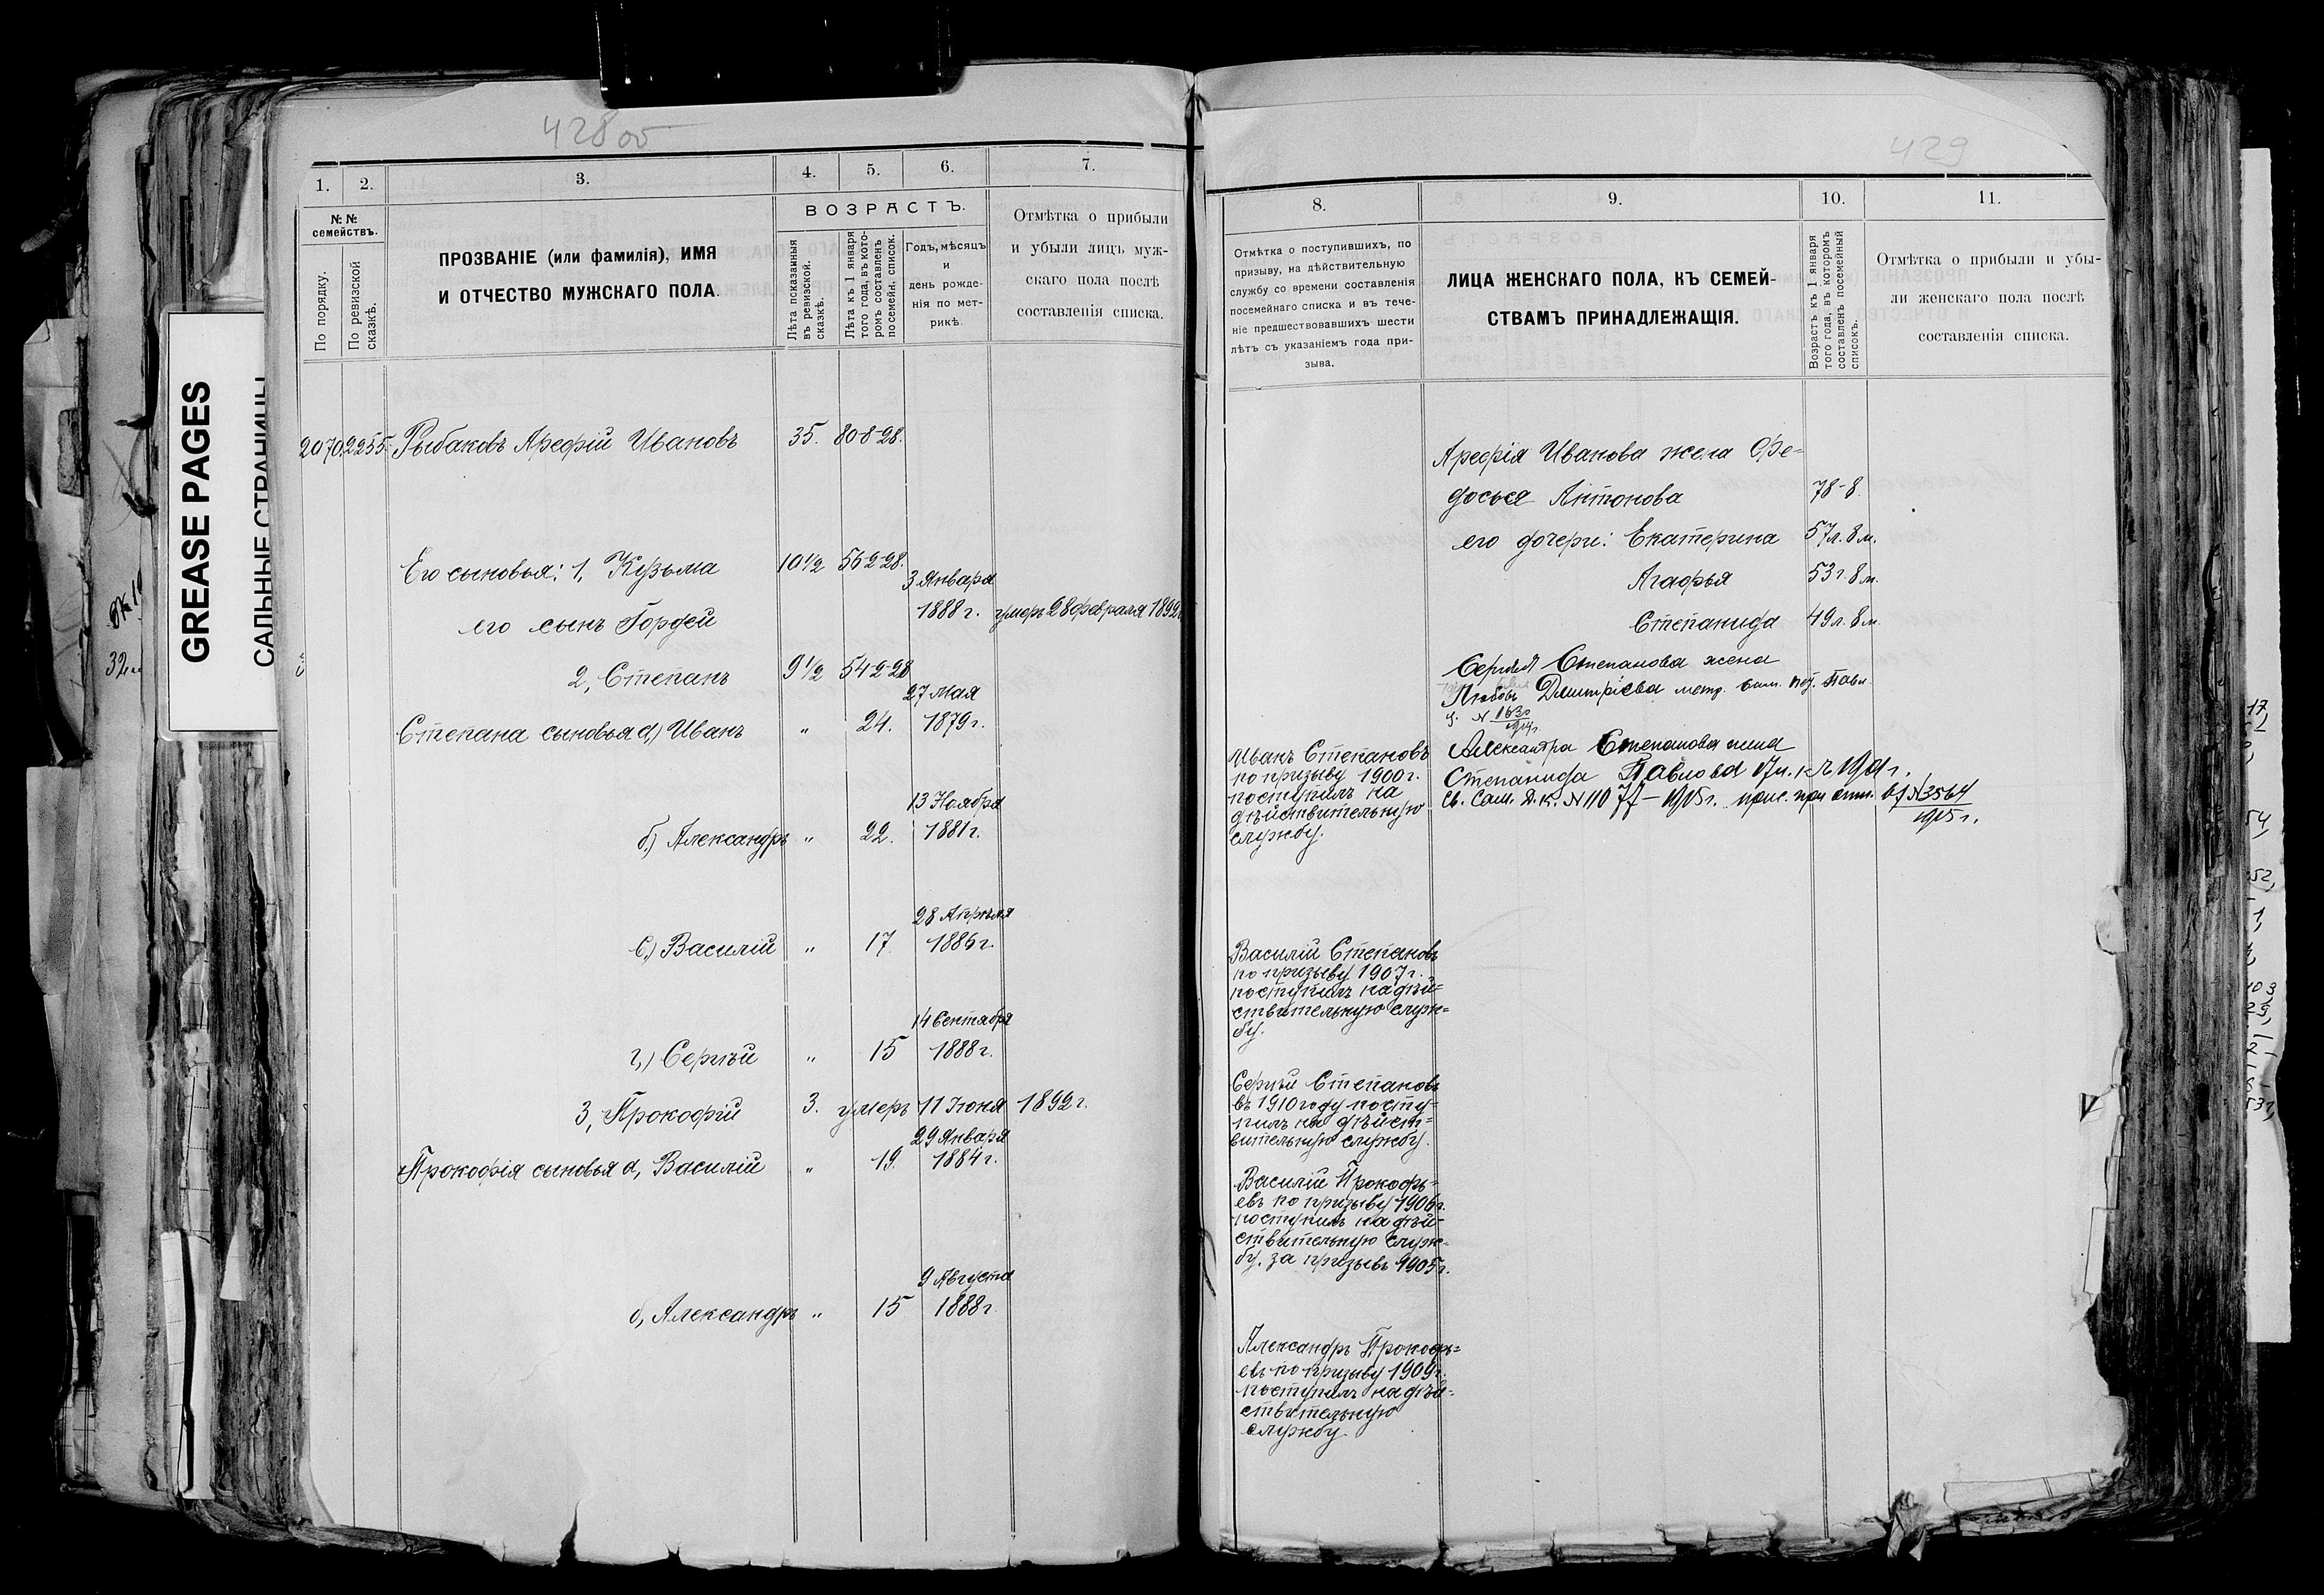 428 об
1. 2. 3. 4. 5. 6. 7.
№ №
семействъ.
По порядку.
По ревизской
сказкѣ.
ПРОЗВАНІЕ (или фамилія), ИМЯ
И ОТЧЕСТВО МУЖСКАГО ПОЛА.
ВОЗРАСТЪ.
Лѣта показанныя
въ ревизской.
сказкѣ.
Лѣта къ 1 января
того года, въ кото-
ромъ составленъ
посемейн. список.
Годъ, мѣсяцъ
и
день рожде-
нія по мет-
рикѣ.
Отмѣтка о прибыли
и убыли лицъ муж-
скаго пола послѣ
составленія списка.
GREASE PAGES
САЛЬНЫЕ СТРАНИЦЫ
2070. 2255. Рыбаковъ Арефій Ивановъ 35. 80-8-28.
Его сыновья: 1, Кузьма 10½ 56-2-28.
его сынъ Гордей 3 Января
1888 г. умеръ 28 февраля 1892
2, Степанъ 9½ 54-2-28
Степана сыновья а) Иванъ „ 24. 27 Мая
1879 г.
б) Александръ „ 22. 13 Ноября
1881 г.
в) Василій „ 17. 28 Апрѣля
1886 г.
г) Сергѣй „ 15 14 Сентября
1888 г.
3, Прокофій 3. умеръ 11 Іюня 1892 г.
Прокофія сыновья а, Василій „ 19. 29 Января
1884 г.
б, Александръ „ 15 9 Августа
1888 г.
429
8. 9. 10. 11.
Отмѣтка о поступившихъ, по
призыву, на дѣйствительную
службу со времени составленія
посемейнаго списка и въ тече-
ніе предшествовавшихъ шести
лѣтъ съ указаніемъ года при-
зыва.
ЛИЦА ЖЕНСКАГО ПОЛА, КЪ СЕМЕЙ-
СТВАМЪ ПРИНАДЛЕЖАЩІЯ.
Возрастъ къ 1 января
того года, въ которомъ
составленъ посемейный
списокъ.
Отмѣтка о прибыли и убы-
ли женскаго пола послѣ
составленія списка.
Арефія Иванова жена Ѳе=
досья Антонова 78-8.
его дочери: Екатерина 57 л. 8 м.
Агафья 53 г. 8 м.
Степанида 49 л. 8 м.
Сергѣя Степанова жена
Любовь Дмитріева метр.
Александра Степанова жена
Степанида Павлова 17 1901 г.
№ 11077 – 1905 г. при № 3564
1915 г.
Иванъ Степановъ
по призыву 1900 г.
поступилъ на
дѣйствительную
службу.
Василій Степановъ
по призыву 1907 г.
поступилъ на дѣй=
ствительную служ=
бу.
Сергѣй Степановъ
въ 1910 году посту=
пилъ на дѣйст=
вительную службу.
Василій Прокофь=
евъ по призыву 1906 г.
поступилъ на дѣй=
ствительную служ=
бу, за призывъ 1905 г.
Александръ Прокофь=
евъ по призыву 1909 г.
поступилъ на дѣй=
ствительную
службу.